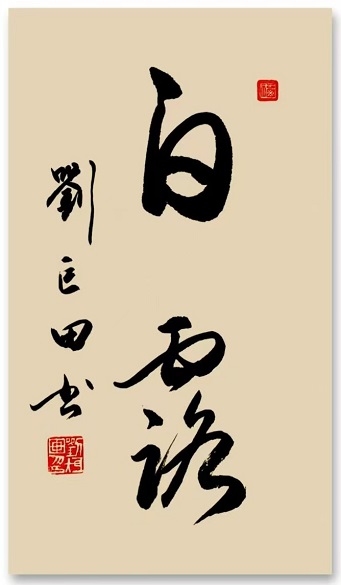 白露
劉巨田书